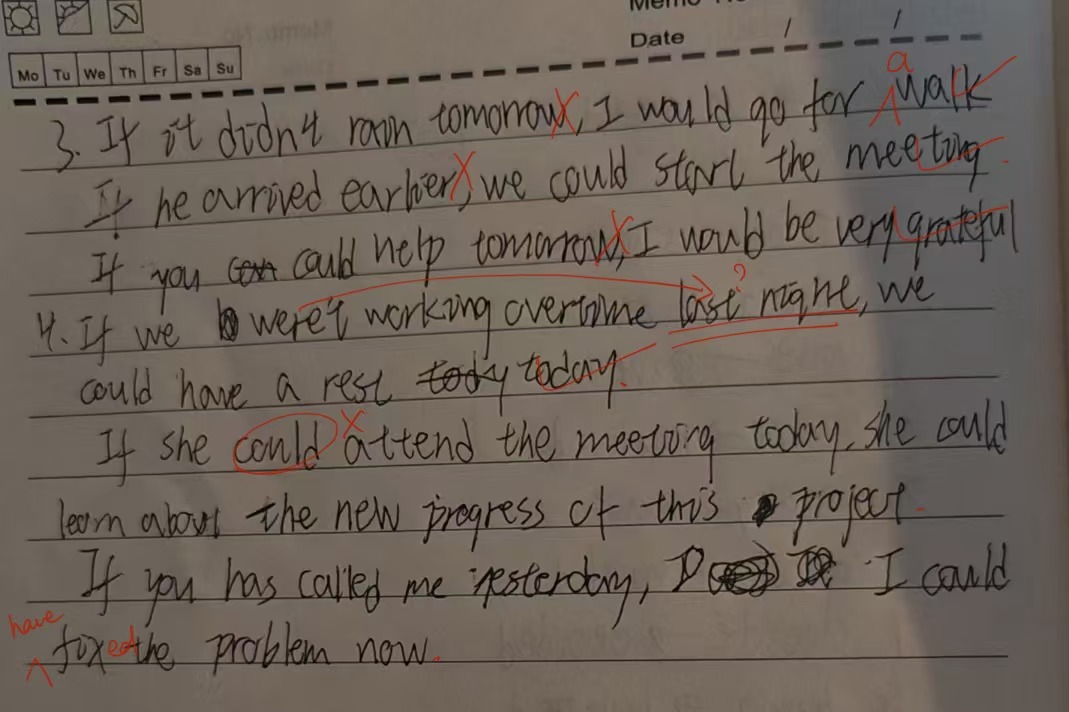 Memo No
Date / /
Mo Tu We Th Fr Sa Su
a
3. If it didn't rain tomorrow, I would go for walk
If he arrived earlier, we could start the meeting.
If you can could help tomorrow, I would be very grateful
?
4. If we were't working overtime last night, we
could have a rest tody today.
If she could attend the meeting today, she could
learn about the new progress of this project.
If you has called me yesterday, I could
have
fixed the problem now.